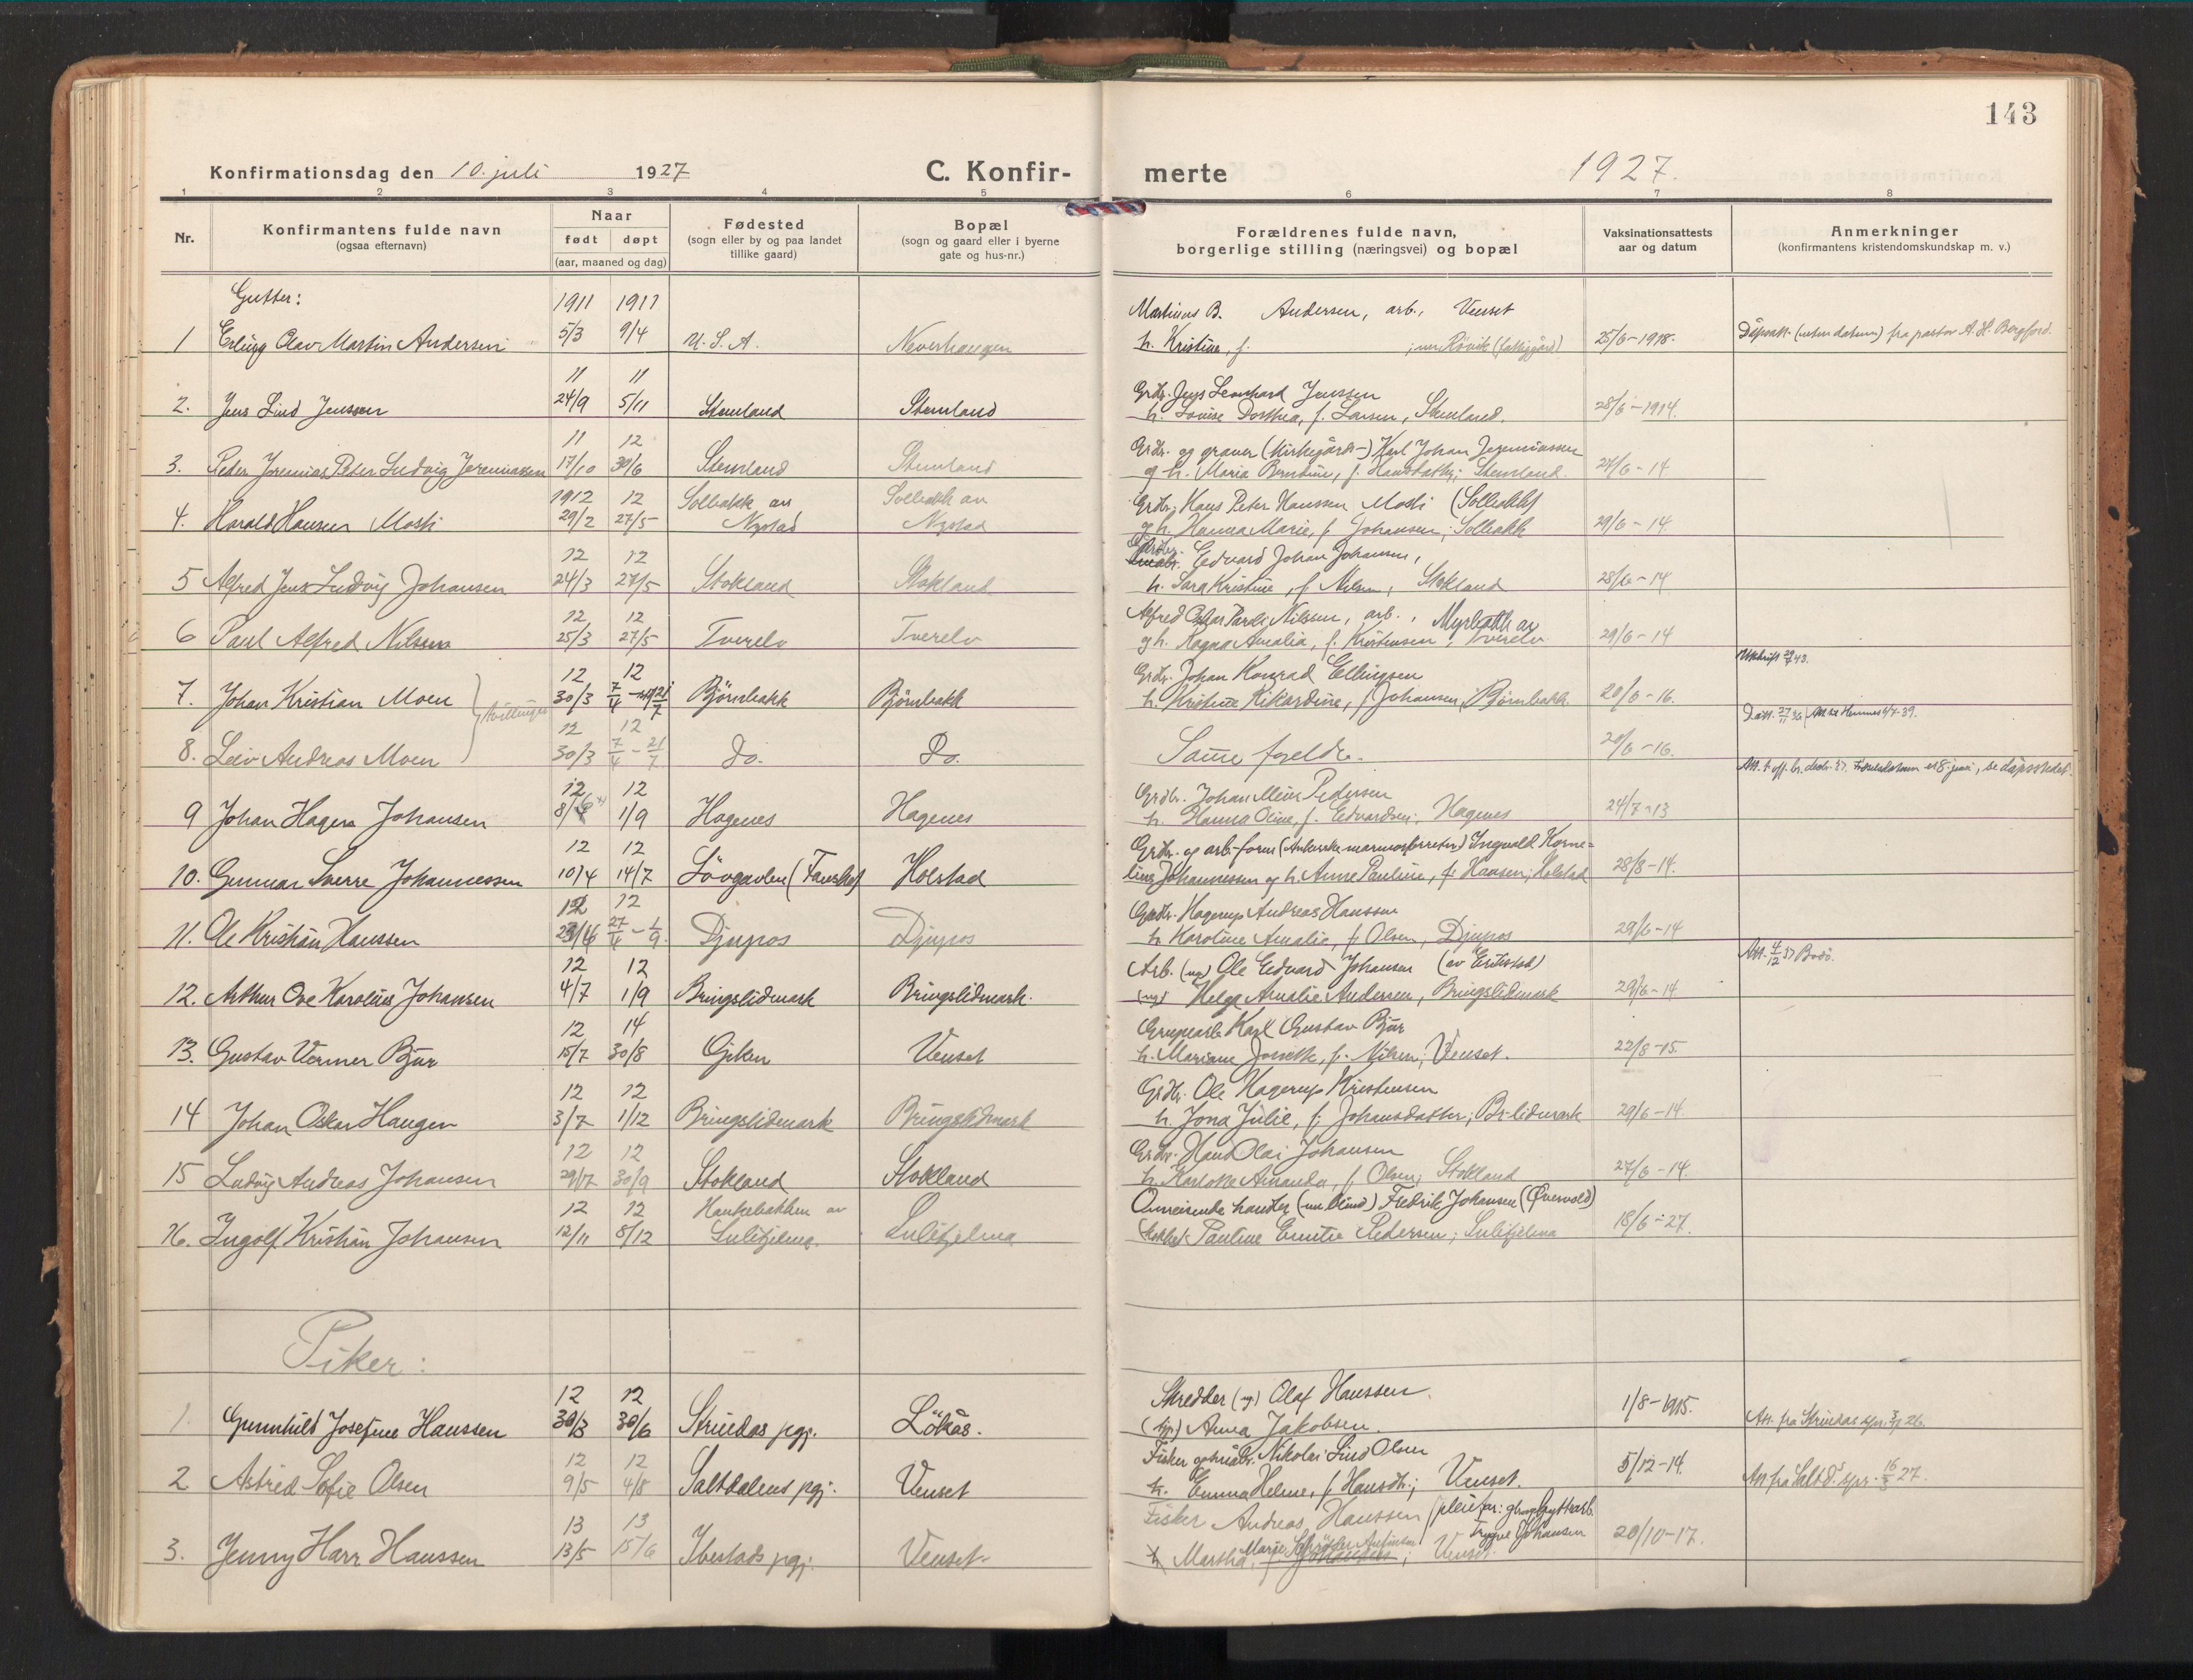 143
Konfirmationsdag den 10. juli 1927
C. Konfir-
merte
1927.
1 2 3 4 5 6 7 8
Nr.
Konfirmantens fulde navn
(ogsaa efternavn)
Naar
født døpt
(aar, maaned og dag)
Fødested
(sogn eller by og paa landet
tillike gaard)
Bopæl
(sogn og gaard eller i byerne
gate og hus-nr.)
Forældrenes fulde navn,
borgerlige stilling (næringsvei) og bopæl
Vaksinationsattests
aar og datum
Anmerkninger
(konfirmantens kristendomskundskap m. v.)
Gutter: 1911 1911 Martinus B. Andersen, arb., Venset
1 Erling Olav Martin Andersen 5/3 9/4 U. S. A. Neverhaugen h. Kristine, f. 25/6-1918. (uten datum) fra pastor A. H. Bergford.
11 11 Grdbr. Jens Leonhard Jenssen
2. Jens Lind Jenssen 24/9 5/11 Stemland Stemland h. Lovise Dorthea, f. Larsen, Stemland. 28/6-1914.
11 12 Grdbr. og graver (kirkegårds-) Karl Johan Jeremiassen
3. Peder Jeremias Peter Ludvig Jeremiassen 17/10 30/6 Stemland Stemland og h. Maria Berntine, f. Hansdatter; Stemland. 27/6-14
1912 12 Solbakk av Solbakk av Grdbr. Hans Peter Hanssen Mosti (Solbakk)
4. Harald Hansen Mosti 29/2 27/5 Nystad Nystad og h. Hanna Marie, f. Johansen; Solbakk 29/6-14
12 12 Edvard Johan Johansen,
5 Alfred Jens Ludvig Johansen 24/3 27/5 Stokland Stokland h. Sara Kristine, f. Nilsen, Stokland 28/6-14
12 12 Alfred Nilssen, arb., Myrbakk av
6 Paul Alfred Nilssen 25/3 27/5 Tverelv Tverelv og h. Ragna Amalia, f. Kristensen; Tverelv 29/6-14
12 12 Grdbr. Johan Konrad Ellingsen Utskrift 43.
7. Johan Kristian Moen 30/3 7/4 - 21/7 Björnbakk Björnbakk h. Kristine Rikardine, f. Johansen, Björnbakk. 20/6-16.
tvillinger
12 12
8. Leiv Andreas Moen 30/3 7/4 - 21/7 Do. Do. Same foreldre. 20/6-16.
12 12 Grdbr. Johan Meier Pedersen
9 Johan Hagen Johansen 8/6 1/9 Hagenes Hagenes h. Hanna Oline, f. Edvardsen; Hagenes 24/7-13
12 12 Grdbr. og arb. form. (Ankerske marmorforretn.) Ingvald Korne=
10. Gunnar Sverre Johannessen 10/4 14/7 Lövgavlen (Fauske) Holstad lius Johannessen og h. Anne Pauline, f. Hansen; Holstad 28/8-14.
12 12 Grdbr. Hagerup Andreas Hanssen
11. Ole Kristian Hanssen 23/4 27/4 - 1/9. Djupos Djupos h. Karoline Amalie, f. Olsen, Djupos 29/6-14
12 12 Arb. (ug.) Ole Edvard Johansen Att. 4/12 37 Bodö.
12. Arthur Ove Karolius Johansen 4/7 1/9 Bringslidmark Bringslidmark. (ug.) Helga Amalie Andersen, Bringslidmark 29/6-14
12 14 Grupearb. Karl Gustav Bjur
13. Gustav Verner Bjur 15/7 30/8 Giken Venset h. Mariane Jonette, f. Nilsen; Venset. 22/8-15.
12 12 Grdbr. Ole Hagerup Kristensen
14 Johan Oskar Haugen 3/7 1/12 Bringslidmark Bringslidmark h. Jona Julie, f. Johansdatter; Br-lidmark 29/6-14.
12 12 Grdbr. Hans Olai Johansen
15 Ludvig Andreas Johansen 29/7 30/9 Stokland Stokland h. Karlotte Amanda, f. Olsen; Stokland 27/6-14.
12 12 Hankebakken av Omreisende handler (nu blind) Fredrik Johansen (Övervold)
16. Ingolf Kristian Johansen 12/11 8/12 Sulitjelma. Sulitjelma Pauline Emilie Pedersen; Sulitjelma 18/6-27.
Piker:
12 12 Skredder (ug.) Olaf Hanssen.
1. Gunnhild Josefine Hanssen 30/3 30/6 Strindas pgj. Lökås. (ug.) Anna Jakobsen. 1/8-1915. Att. fra Strindas spr. 26.
12 12 Fisker og Nikolai Lind Olsen
2 Astrid Sofie Olsen 9/5 4/8 Saltdalens pgj. Venset h. Emma Helene, f. Hansdtr.; Venset. 5/12-14. Att. fra Saltd.s spr. 16/3 27.
13 13 Fisker Andreas Hanssen
3. Jenny Harr Hanssen 13/5 15/6 Ibestads pgj. Venset h. Martha Marie Venset. Trygve Johansen 20/10-17.